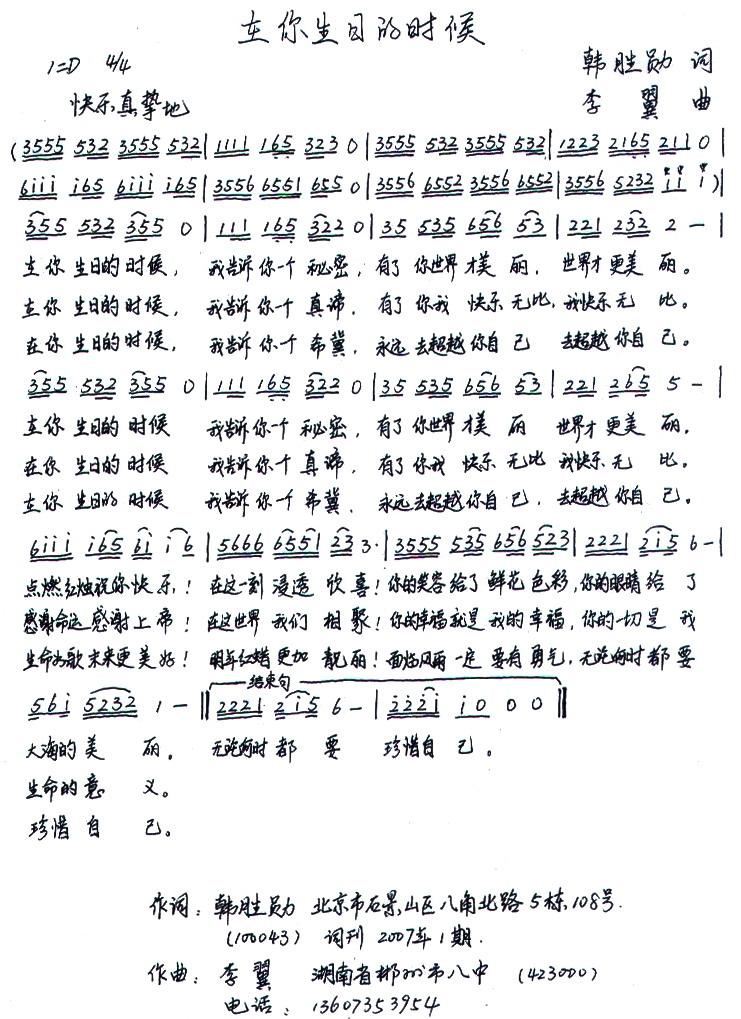 在你生日的时候
1=D 4/4
韩胜勋 词
快乐,真挚地
李翼 曲
(3555 532 3555 532 | 1111 165 323 0 | 3555 532 3555 532 | 1223 2165 211 0 |
6iii i65 6iii i65 | 3556 6551 655 0 | 3556 6552 3556 6552 | 3556 5232 ii i) |
355 532 355 0 | 111 165 322 0 | 35 535 656 53 | 221 232 2 - |
在你 生日的 时候, 我告诉 你一个 秘密, 有了 你世界 才美 丽, 世界才 更美 丽。
在你 生日的 时候, 我告诉 你一个 真谛, 有了 你我 快乐 无比, 我快乐 无 比。
在你 生日的 时候, 我告诉 你一个 希冀, 永远 去超越 你自 己 去超越 你自 己。
355 532 355 0 | 111 165 322 0 | 35 535 656 53 | 221 265 5 - |
在你 生日的 时候 我告诉 你一个 秘密, 有了 你世界 才美 丽 世界才 更美 丽。
在你 生日的 时候 我告诉 你一个 真谛, 有了 你我 快乐 无比 我快乐 无 比。
在你 生日的 时候 我告诉 你一个 希冀, 永远 去超越 你自 己, 去超越 你自 己。
6iii i65 6i i 6 | 5666 6551 23 3· | 3555 535 656 523 | 2221 2i5 6 - |
点燃红烛祝你 快乐! 在这一刻 浸透 欣喜! 你的笑容 给了 鲜花 色彩, 你的眼睛 给 了
感谢命运 感谢 上帝! 在这世界 我们 相聚! 你的幸福 就是 我的 幸福, 你的一切 是 我
生命如歌 未来更 美好! 明年红蜡 更加 靓丽! 面临风雨 一定 要有 勇气, 无论何时 都 要
结束句
56i 5232 1 - || 2221 2i5 6 - | 222i i 0 0 0 ||
大海的 美 丽。 无论何时 都 要 珍惜自 己。
生命的 意 义。
珍惜 自 己。
作词: 韩胜勋 北京市石景山区八角北路5栋108号.
(100043) 词刊 2007年1期.
作曲: 李翼 湖南省郴州市八中 (423000)
电话: 13607353954